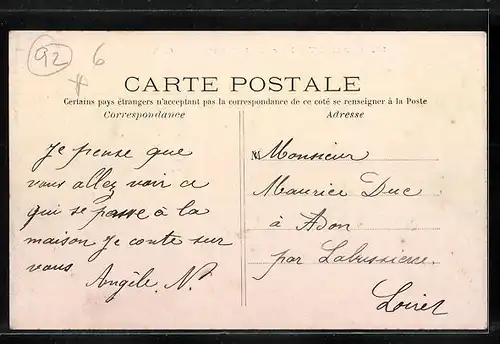 92 6
CARTE POSTALE
Certains pays étrangers n'acceptant pas la correspondance de ce coté se renseigner à la Poste
Correspondance
Adresse
Je pense que
vous allez voir ce
qui se passe à la
maison Je conte sur
vous
Angèle. N.
M Monsieur
Maurice Duc
à Adon
par Labussiere.
Loiret